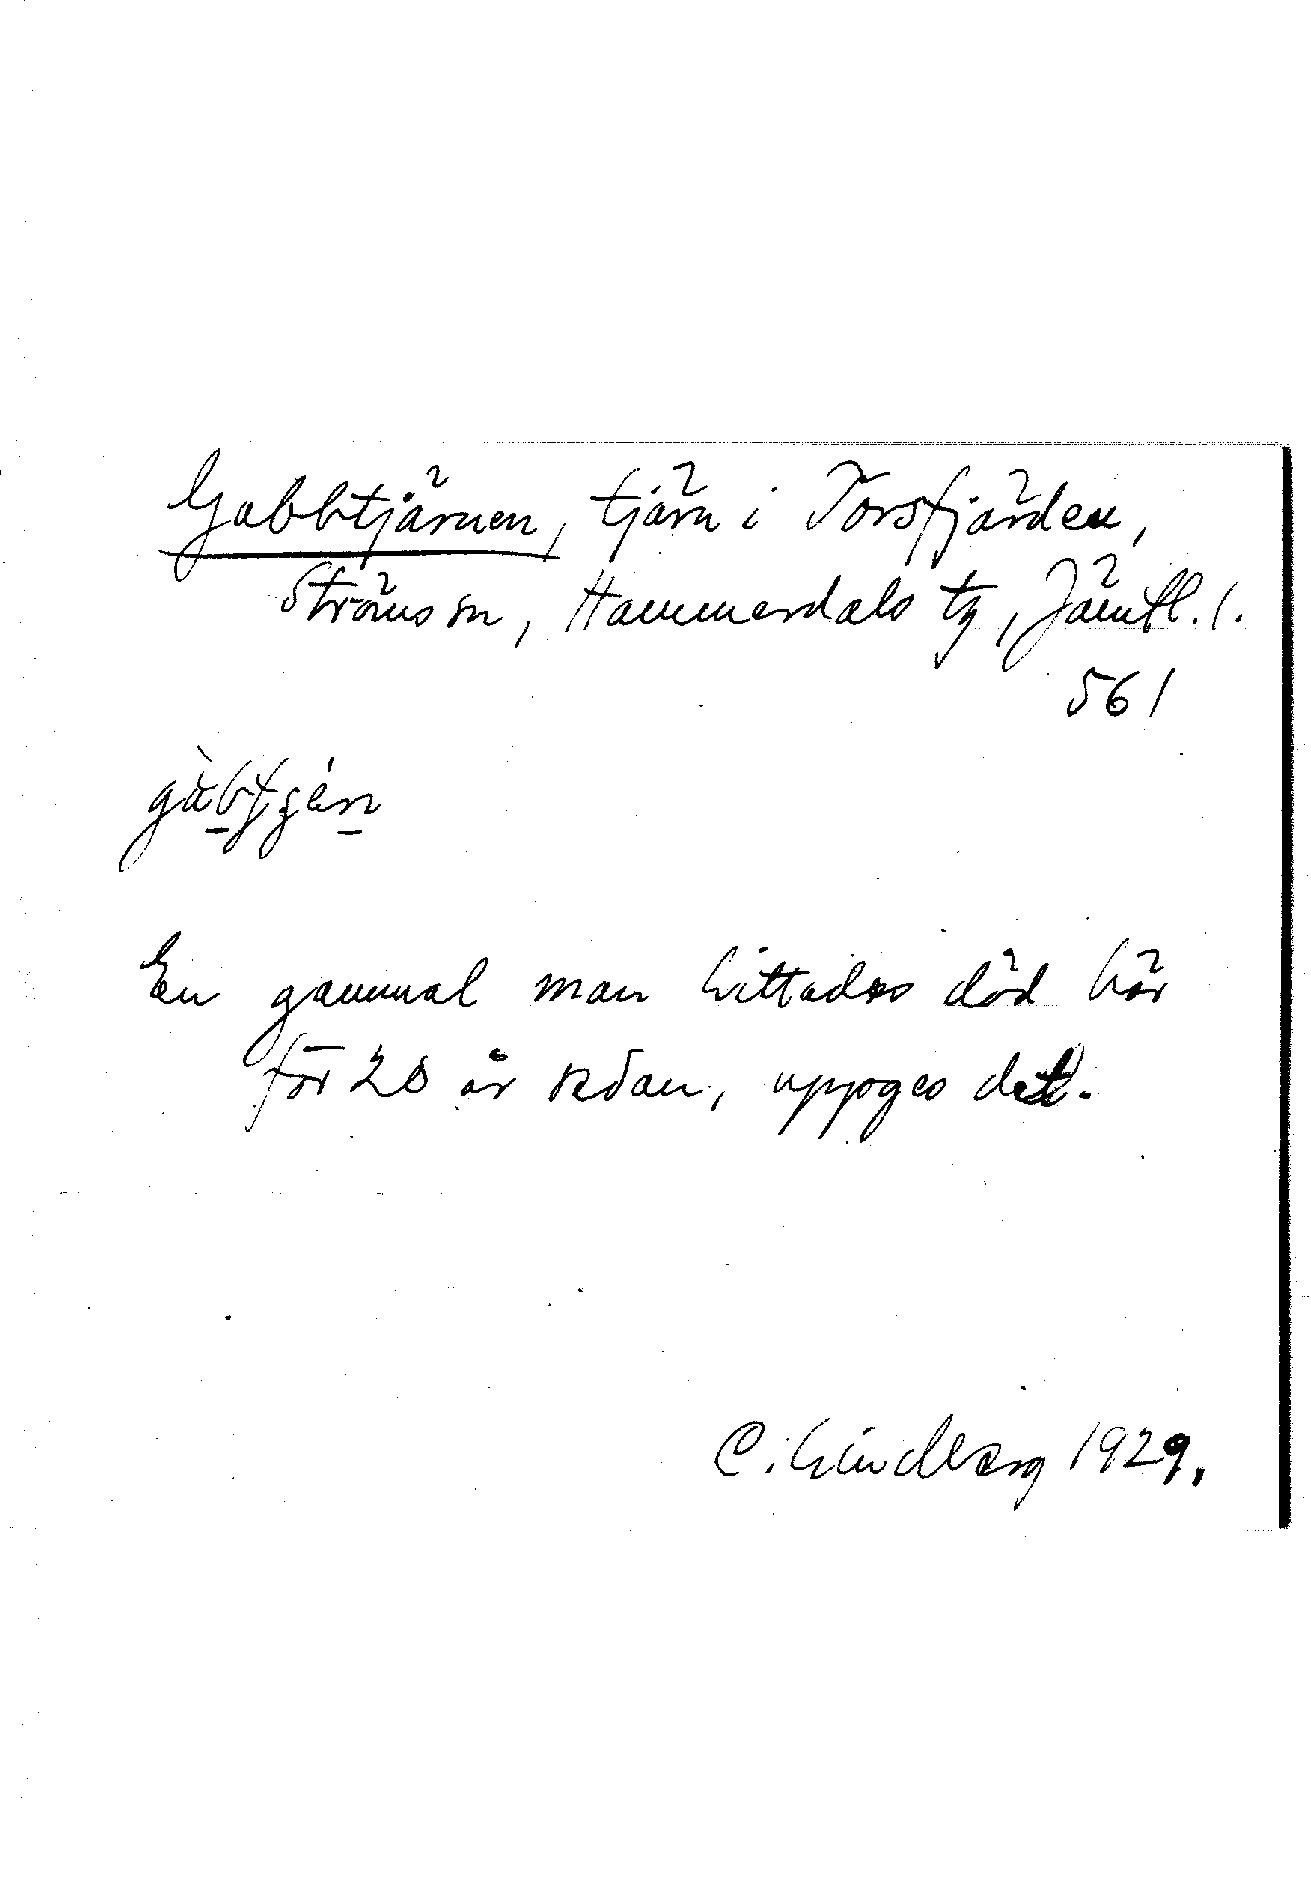 Gabbtjärnen, tjärn i Torsfjärden,
Ströms sn, Hammerdals tg, Jämtl. l.
561
En gammal man hittades död här
för 20 år sedan, uppges det.
C. Lindberg 1929.